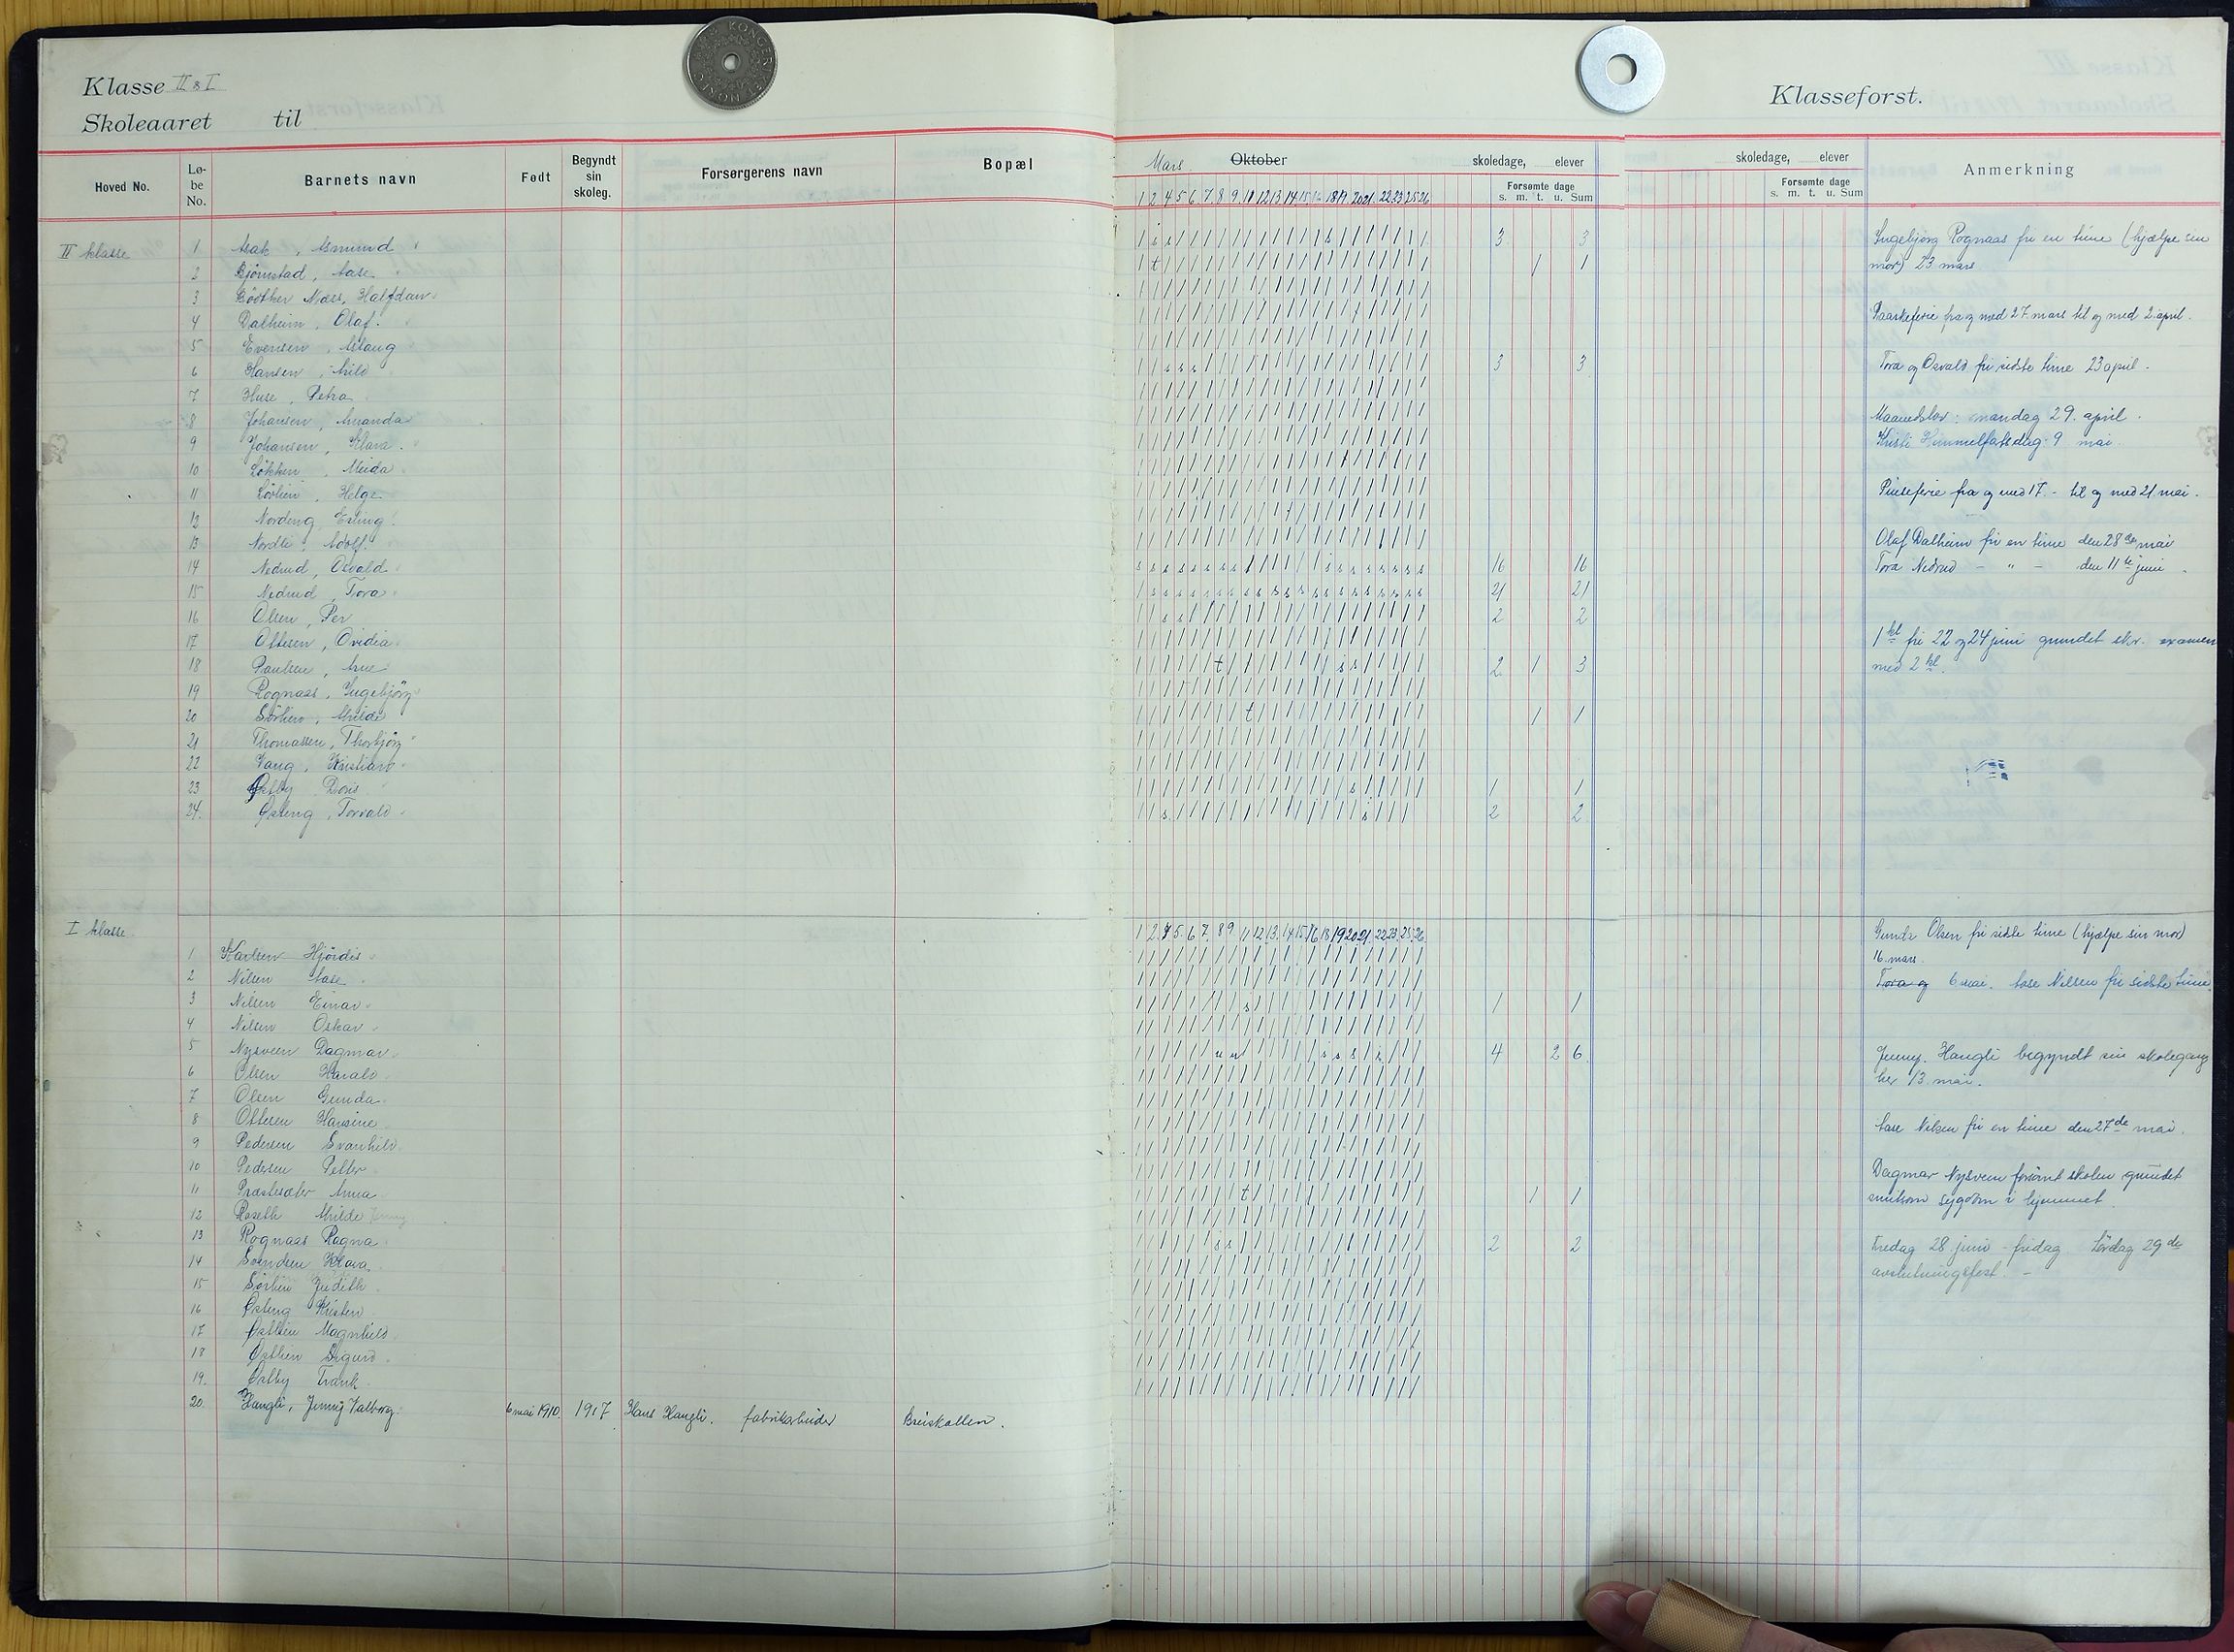 Klasse II & I
Skoleaaret til
Klasseforst.
Hoved No. Lø-be No. Barnets navn Født Begyndt sin skoleg. Forsørgerens navn Bopæl
Mars Oktober skoledage, elever
Forsømte dage
s. m. t. u. Sum
1 2 4 5 6 7 8 9 11 12 13 14 15 16 18 19 20 21 22 23 25 26
skoledage, elever
Forsømte dage
s. m. t. u. Sum
Anmerkning
II klasse
1 Asak, Asmund 3 3
2 Bjørnstad, Aase 1 1
3 Halfdan
4 Dalheim, Olaf.
5 Evensen, Aslaug
6 Hansen, 3 3
7 Huse, Petra
8 Johansen, Amanda
9 Johansen, Klara.
10 Løkken,
11 Helge
12 Nordeng, Erling.
13 Nordli, Adolf.
14 Nedrud, Osvald 16 16
15 Nedrud, Tora 21 21
16 Olsen, Per 2 2
17 Ottesen, Ovidia
18 Paulsen, Arne 2 1 3
19 Rognaas, Ingebjörg
20 1 1
21 Thomassen, Thorbjörg
22 Vang, Kristian
23 Østby Doris 1 1
24. Østeng, Torvald 2 2
Ingebjørg Rognaas fri en time (hjælpe sin
mor) 23 mars
Paaskeferie fra og med 27. mars til og med 2. april.
Tora og Osvald fri sidste time 23 april.
Maanedslov: mandag 29. april.
Kristi Himmelfartsdag 9 mai
Pinseferie fra og med 17. - til og med 21 mai.
Olaf Dalheim fri en time den 28de mai
Tora Nedrud - " - den 11te juni
1 kl fri 22 og 24 juni grundet skr. examen
med 2 kl.
I klasse
1 2 4 5 6 7. 8 9 11 12 13. 14 15 16 18 19 20 21. 22 23. 25. 26
1 Karlsen Hjördis
2 Nilsen Aase
3 Nilsen Einar 1 1
4 Nilsen Oskar
5 Nysveen Dagmar 4 2 6
6 Olsen Harald
7 Olsen Gunda
8 Ottesen Hansine
9 Pedersen Svanhild
10 Pedersen Petter
11 Præstesæter Anna 1 1
12 Roseth Jenny
13 Rognaas Ragna 2 2
14 Svendsen Klara
15 Judith
16 Østeng Kristen
17 Østlien Magnhild
18 Østlien Sigurd
19. Østby Frank
20. Haugli, Jenny Valborg. 6 mai 1910 1917 Hans Haugli. fabrikarbeider Breiskallen.
Gunda Olsen fri sidste time (hjælpe sin mor)
16 mars.
Tora og 6 mai. Aase Nilsen fri sidste time.
Jenny Haugli begyndt sin skolegang
her 13. mai.
Aase Nilsen fri en time den 27de mai.
Dagmar Nysveen forsömt skolen grundet
smitsom sygdom i hjemmet.
Fredag 28 juni - fridag Lørdag 29de
avslutningsfest. -